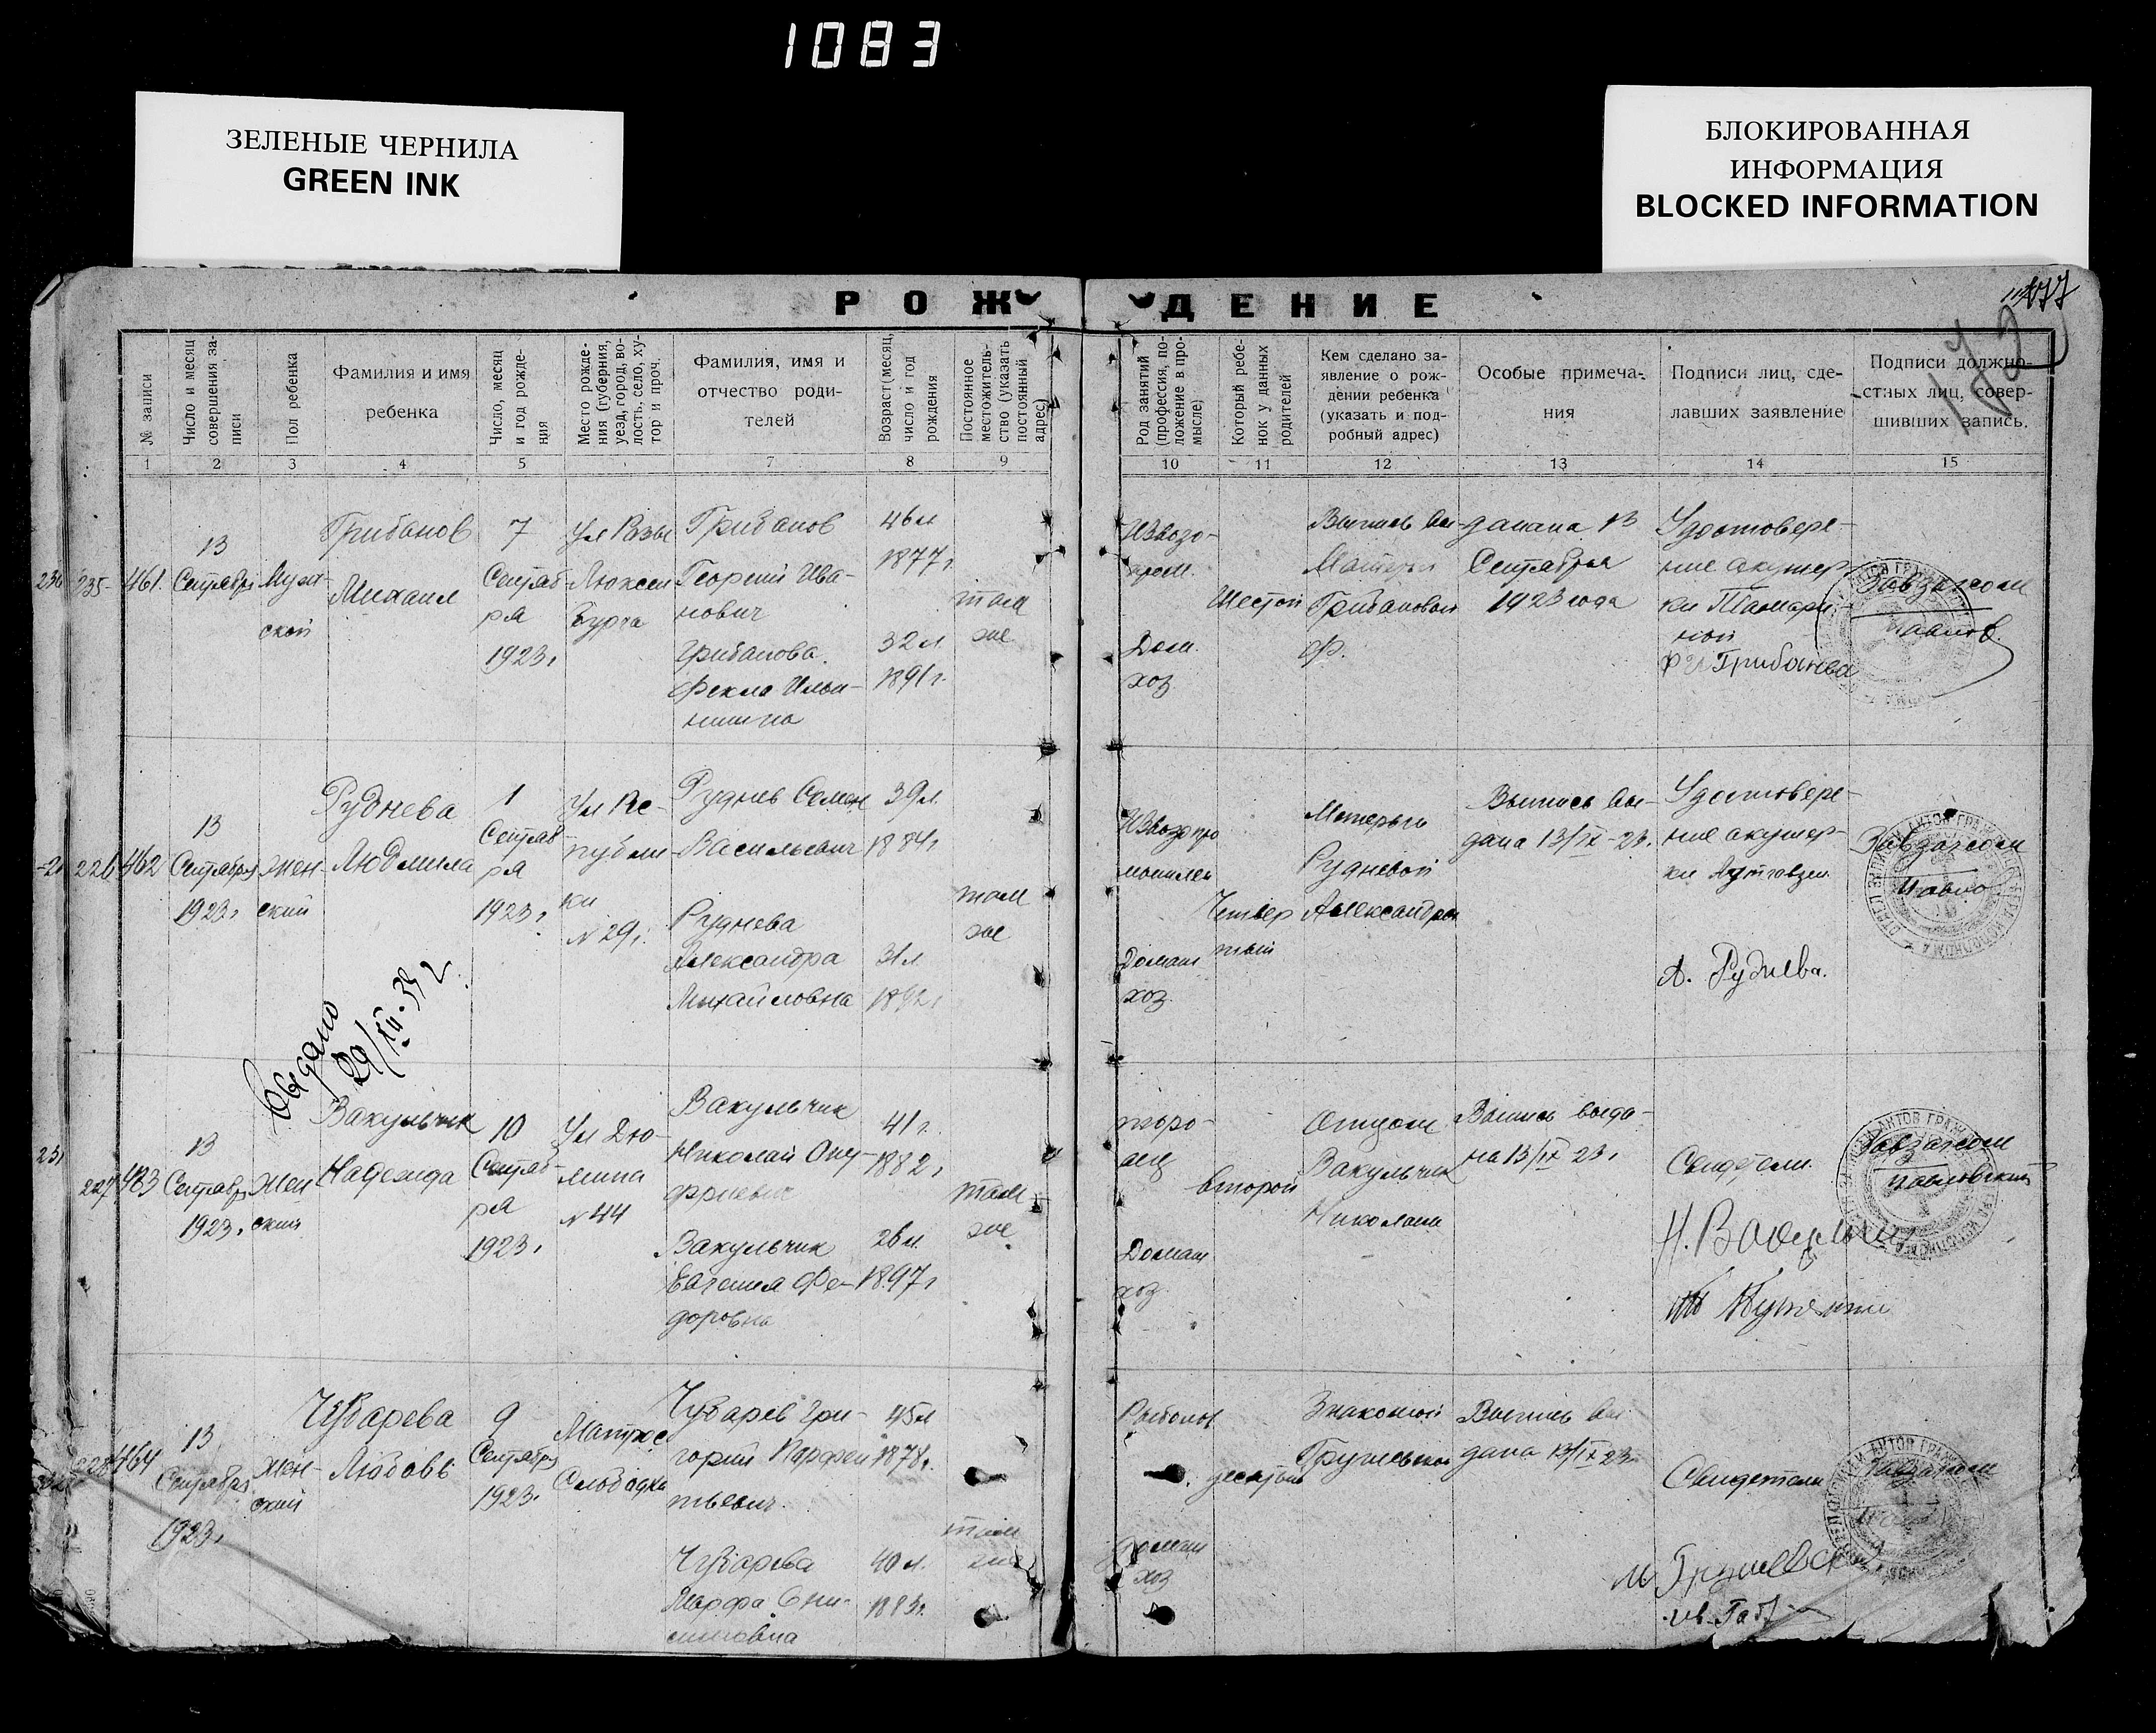 1083
ЗЕЛЕНЫЕ ЧЕРНИЛА
GREEN INK
БЛОКИРОВАННАЯ
ИНФОРМАЦИЯ
BLOCKED INFORMATION
РОЖДЕНИЕ
№ записи
Число и месяц совершения записи
Пол ребенка
Фамилия и имя
ребенка
Число, месяц и год рождения
Место рождения (губерния, уезд, город, волость, село, хутор и проч.
Фамилия, имя и
отчество роди-
телей
Возраст (месяц, число и год рождения
Постоянное местожительство (указать постоянный адрес)
Род занятий (профессия, положение в промысле)
Который ребенок у данных родителей
Кем сделано за-
явление о рож-
дении ребенка
(указать и под-
робный адрес)
Особые примеча-
ния
Подписи лиц, сде-
лавших заявление
Подписи должно-
стных лиц, совер-
шивших запись.
1 2 3 4 5 7 8 9 10 11 12 13 14 15
235
461
13
Сентября
Муж-
ской
Грибанов
Михаил
7
Сентяб
ря
1923г
Ул Розы
Люксем
бурга
Грибанов
Георгий Ива-
нович
Грибанова
Фекла Ильи-
нишна
46 л
1877г
32 л
1891г.
там
же
Извозо-
пром.
Дом.
хоз
Шестой
Выпись вы-дана 13
Матерью
Сентября
Грибановой
1923 года
Ф.
Удостовере-
ние акушер
ки
Грибанова
Завзагсом
226
462
13
Сентября
1923г
Жен-
ский
Руднева
Людмила
1
Сентяб
ря
1923г
Ул Рес-
публи-
ки
№ 29
Руднев Семен
Васильевич
Руднева
Александра
Михайловна
39 л.
1884г
31 л
1892г
там
же
Извозопро
мышлен
Домаш
хоз.
Четвер
тый
Матерью
Рудневой
Александрой
Выпись вы-
дана 13/IX-23.
Удостовере-
ние акушер-
ки
А. Руднева.
Завзагсом
выдано
29/XII-39 г.
227
463
13
Сентября
1923г
Жен
ский
Вакульчик
Надежда
10
Сентяб-
ря
1923г
№ 44
Вакульчик
Николай Ону-
фриевич
Вакульчик
Евгения Фе-
доровна
41 г.
1882г
26 л.
1897г
там
же
Домаш
хоз
второй
Отцом
Вакульчик
Николаем
Выпись выда-
на 13/IX 23г
Свидетели
Завзагсом
Павловский
228
464
13
Сентября
1923г
Жен-
ский
Чубарева
Любовь
9
Сентября
1923г
Матрос
Слободка
Чубарев Гри-
горий Парфен
тьевич
Чубарева
Марфа Они-
симовна
45 л
1878г.
40 л.
1883г.
там
Рыболов
Домаш
хоз
десятый
Знакомой
Выпись вы
дана 13/IX 23
Свидетели
Завзагсом